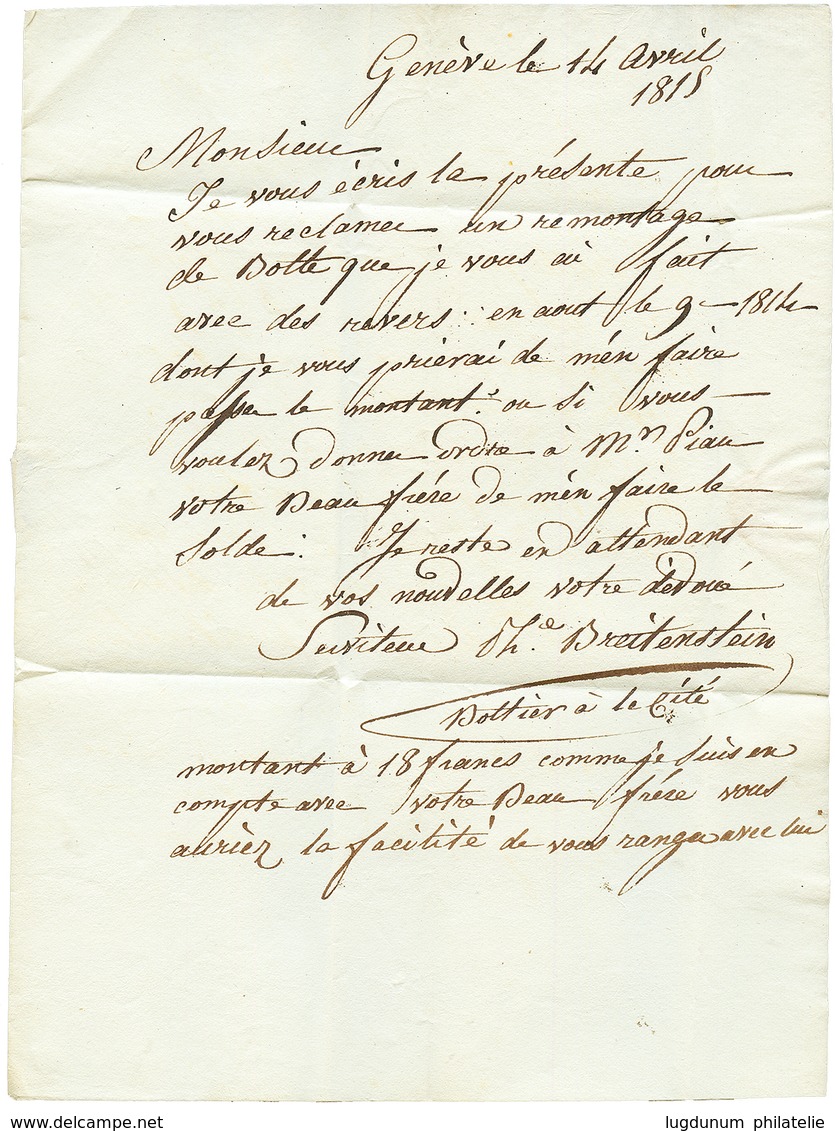 Genève le 14 Avril
1815
Monsieur
Je vous écris la présente pour
vous reclamer un remontage
de Botte que je vous ai fait
avec des revers : en aout le 9 - 1814
dont je vous prierai de m'én faire
passer le montant. ou Si vous
voulez donner ordre à Mr. Piau
votre Beau frére de m'én faire le
Solde : Je reste en attendant
de vos nouvelles votre dévoué
Serviteur Th.e Breitenstein
Bottier à le Cité
montant à 18 francs comme je Suis en
compte avec votre Beau frére vous
auriéz la facilité de vous ranger avec lui
www.delcampe.net
lugdunum philatelie